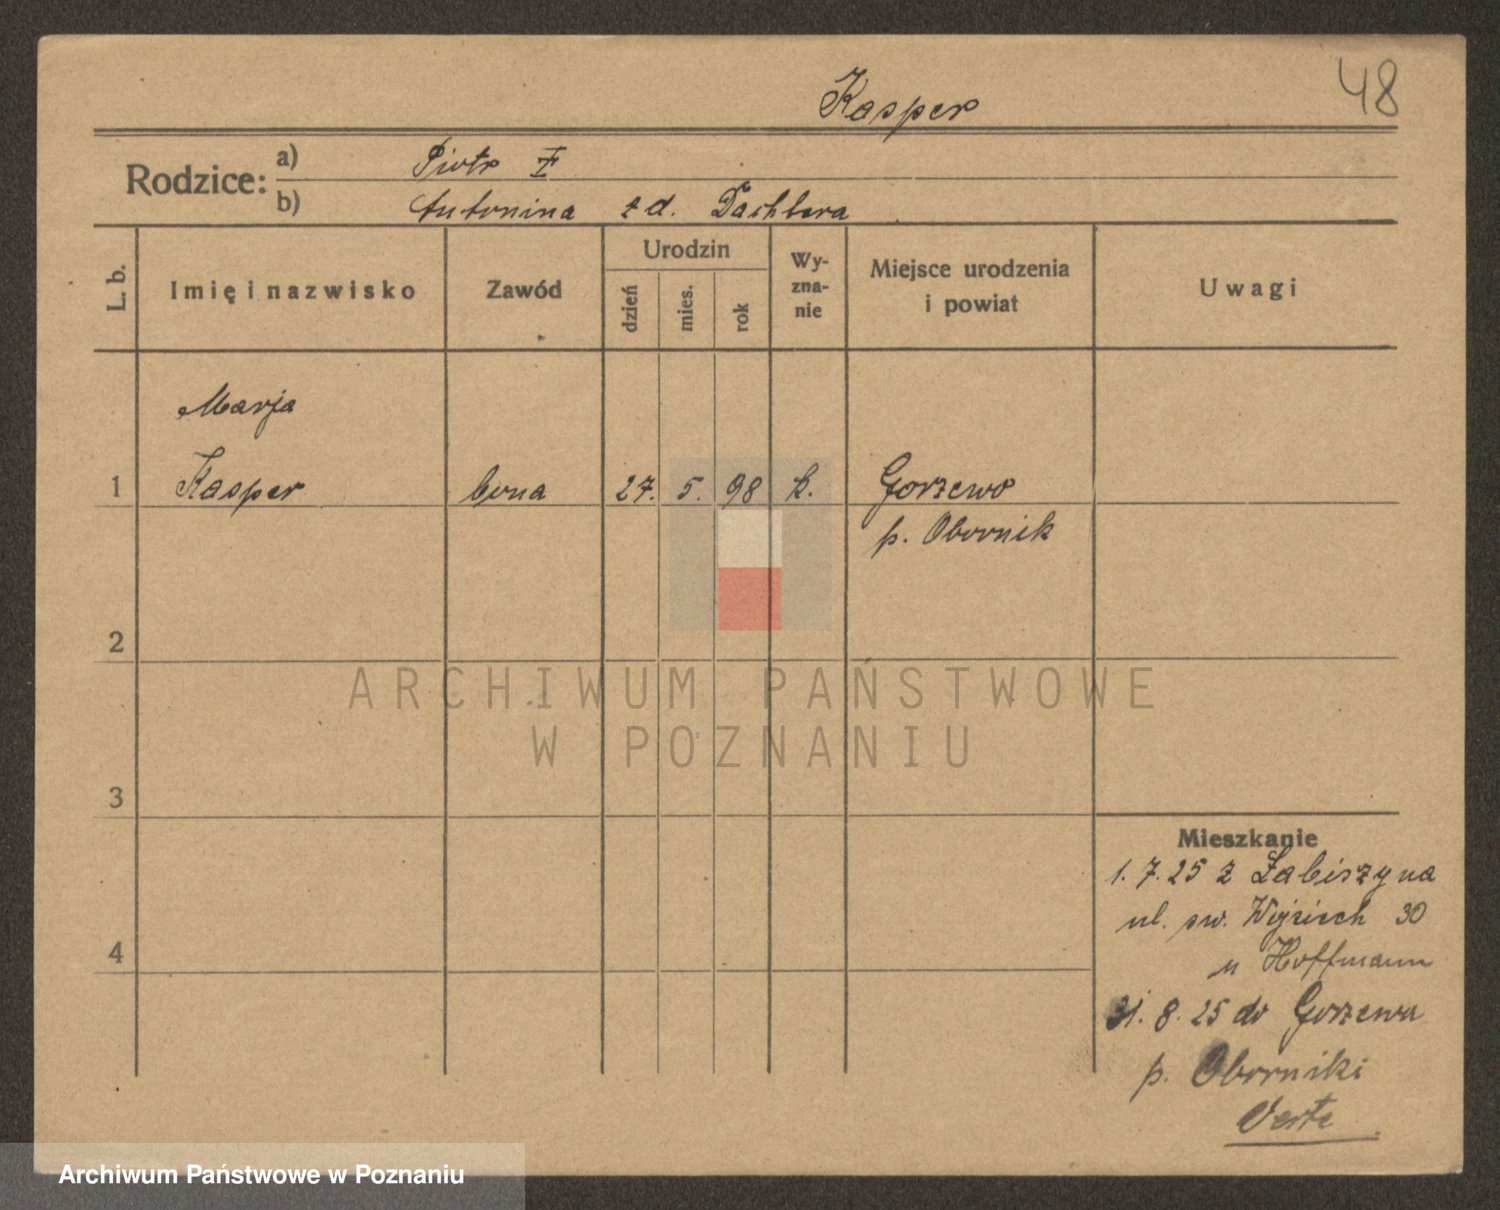 48
Kasper
Rodzice:
a) Piotr
b) Antonina z d. Dachtera
L. b.
Imię i nazwisko
Zawód
Urodzin
dzień
mies.
rok
Wy-
zna-
nie
Miejsce urodzenia
i powiat
Uwagi
Marja
1 Kasper bona 27. 5. 98 k. Gorzewo
p. Obornik
2
3
4
Mieszkanie
1. 7. 25 z Łabiszyna
ul. sw. Wojciech 30
u Hoffmann
31. 8. 25 do Gorzewa
p. Oborniki
Verte
ARCHIWUM PAŃSTWOWE
W POZNANIU
Archiwum Państwowe w Poznaniu